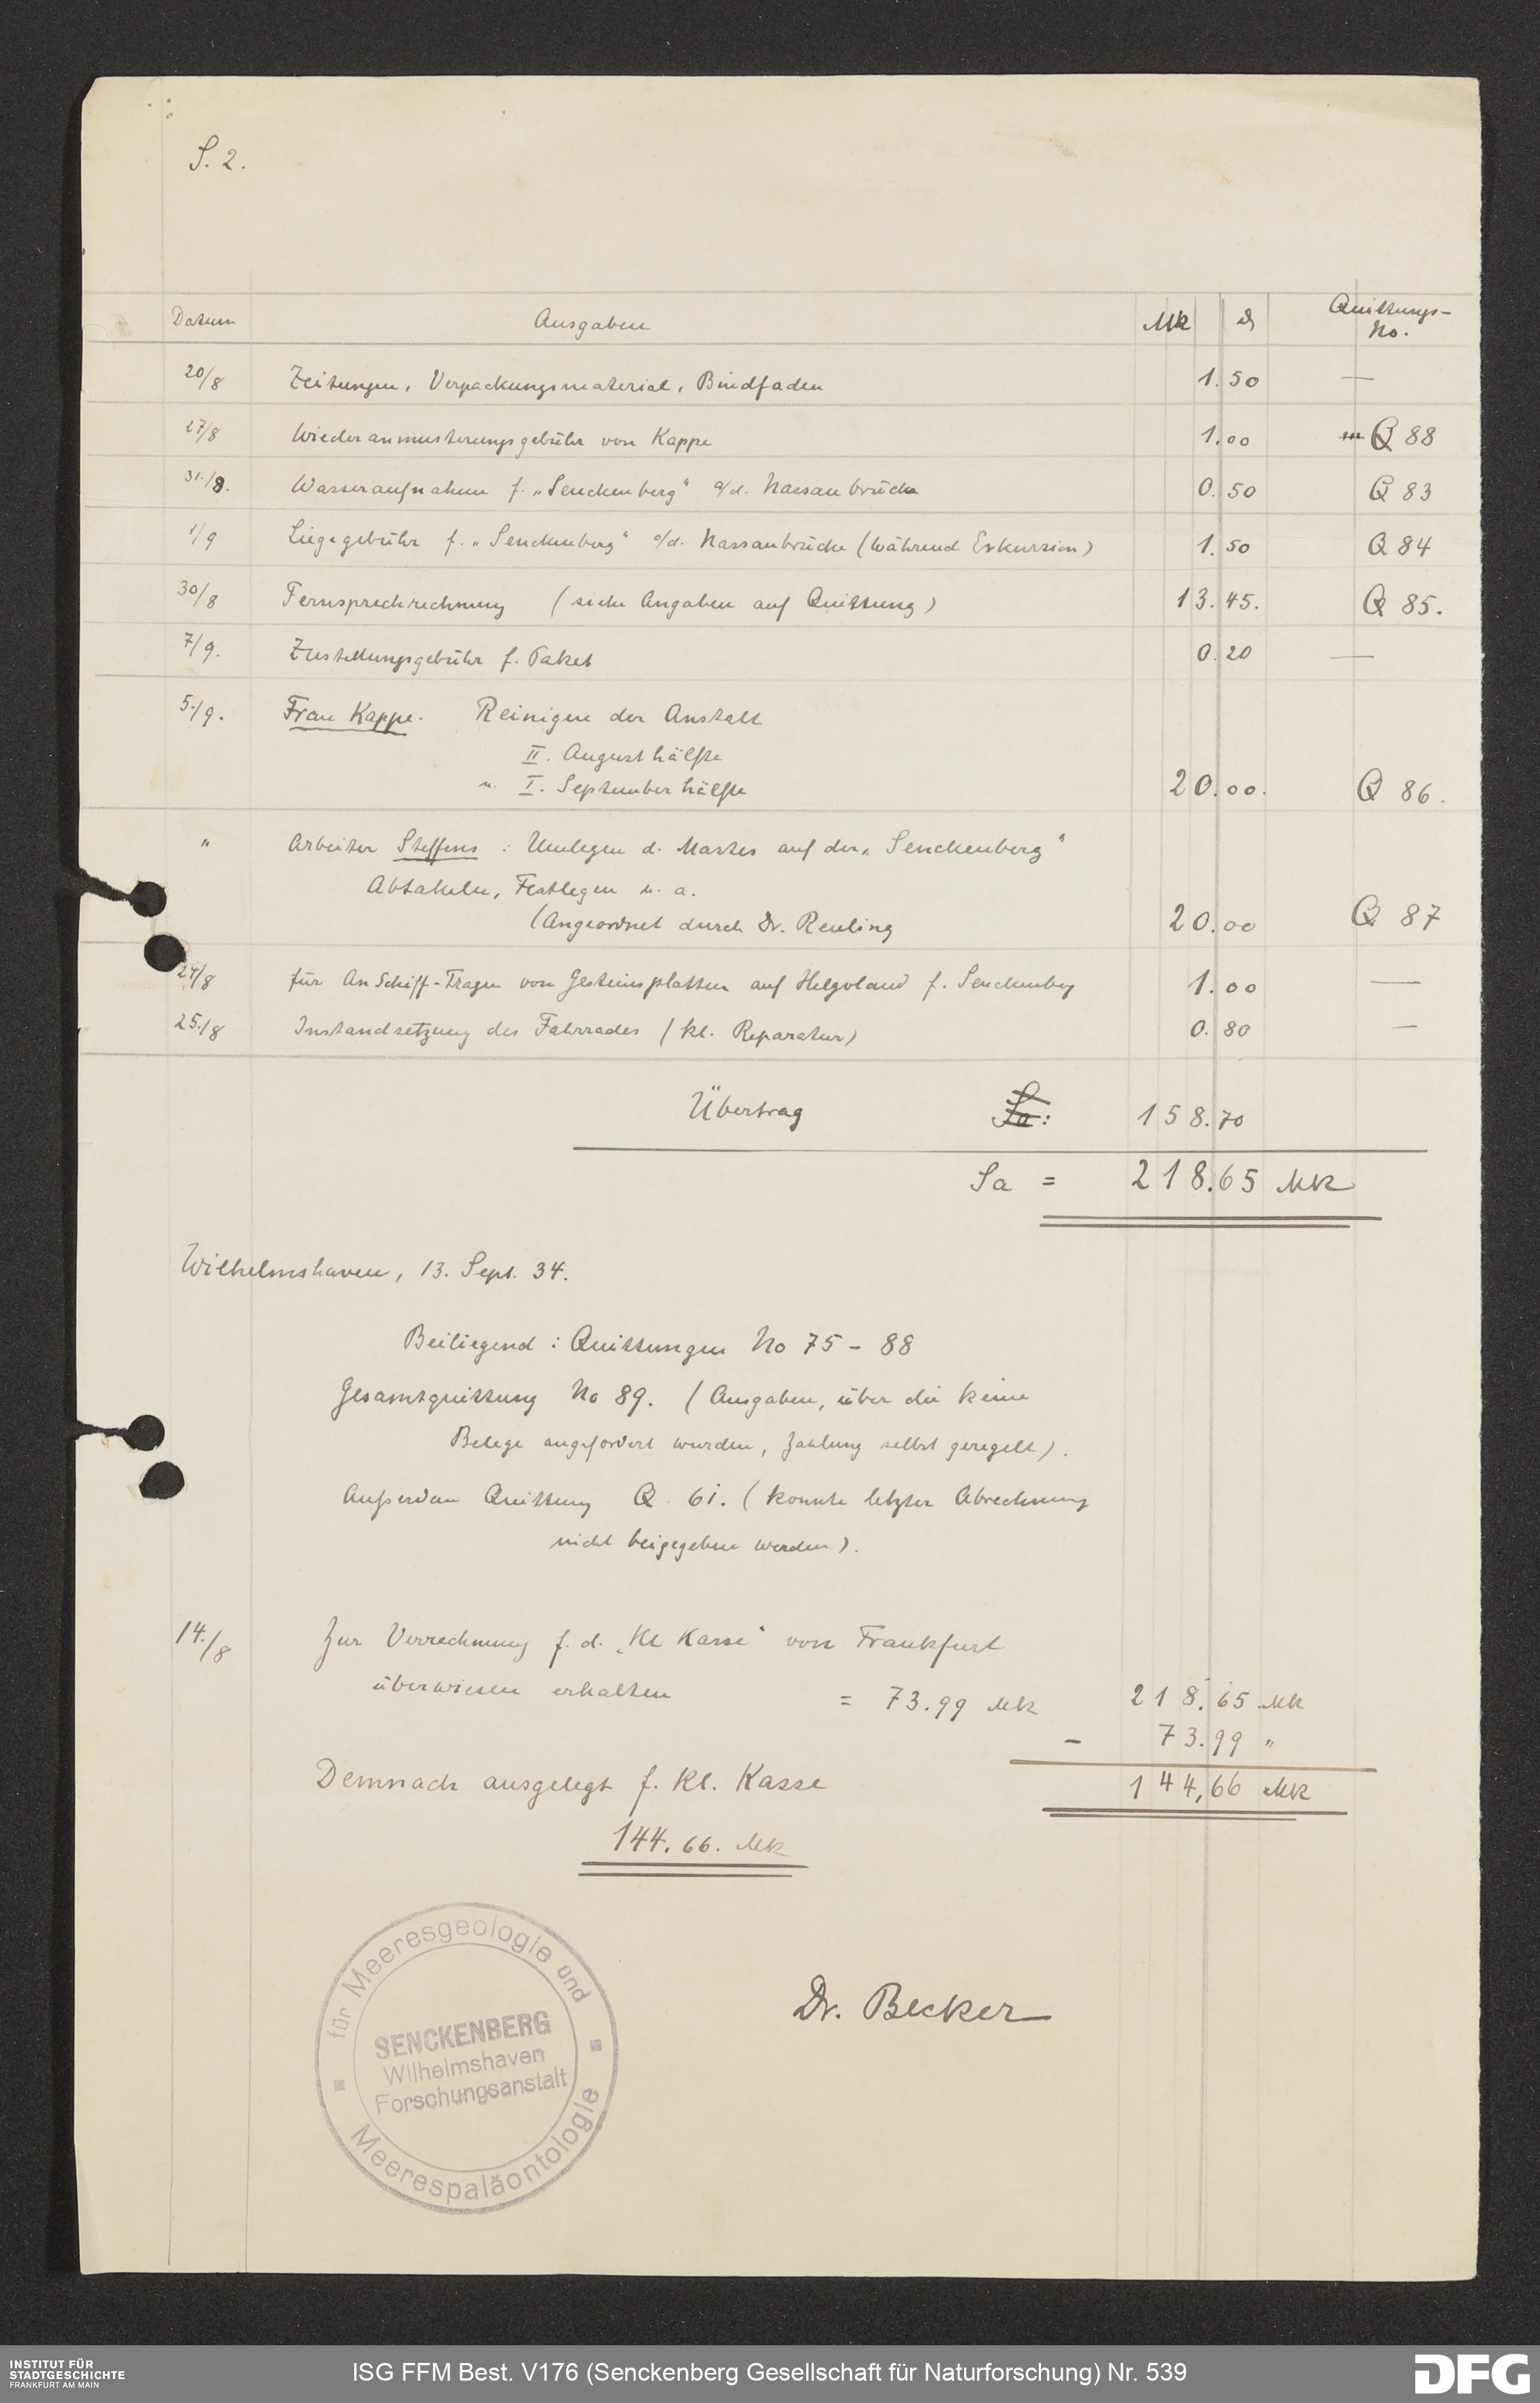 S. 2.
Datum Ausgaben Mk ₰ Quittungs-
No.
20/8 Zeitungen, Verpackungsmaterial, Bindfaden 1.50 —
27/8 Wiederanmusterungsgebühr von Kappe 1.00 Q 88
31./8. Wasseraufnahme f. „Senckenberg“ a/d. Nassaubrücke 0.50 Q 83
1/9 Liegegebühr f. „Senckenberg“ a/d. Nassaubrücke (während Exkursion) 1.50 Q 84
30/8 Fernsprechrechnung (siehe Angaben auf Quittung) 13.45. Q 85.
7/9. Zustellungsgebühr f. Paket 0.20 —
5./9. Frau Kappe. Reinigen der Anstalt
II. Augusthälfte
u. I. Septemberhälfte 20.00. Q 86.
" Arbeiter Steffens : Umlegen d. Mastes auf der „Senckenberg“
Abtakeln, Festlegen u. a.
(Angeordnet durch Dr. Reuling 20.00 Q 87
24/8 für An Schiff-Tragen von Gesteinsplatten auf Helgoland f. Senckenberg 1.00 —
25./8 Instandsetzung des Fahrrades (kl. Reparatur) 0.80 —
Übertrag Sa: 158.70
Sa = 218.65 Mk
Wilhelmshaven, 13. Sept. 34.
Beiliegend : Quittungen No 75 - 88
Gesamtquittung No 89. (Ausgaben, über die keine
Belege angefordert wurden, Zahlung selbst geregelt).
Außerdem Quittung Q 61. (konnte letzter Abrechnung
nicht beigegeben werden).
14./8 Zur Verrechnung f. d. „Kl Kasse“ von Frankfurt
überwiesen erhalten = 73.99 Mk 218.65 Mk
- 73.99 "
Demnach ausgelegt f. Kl. Kasse 144,66 Mk
144.66. Mk
für Meeresgeologie und
SENCKENBERG
Wilhelmshaven
Forschungsanstalt
Meerespaläontologie
Dr. Becker
INSTITUT FÜR
STADTGESCHICHTE
FRANKFURT AM MAIN
ISG FFM Best. V176 (Senckenberg Gesellschaft für Naturforschung) Nr. 539
DFG